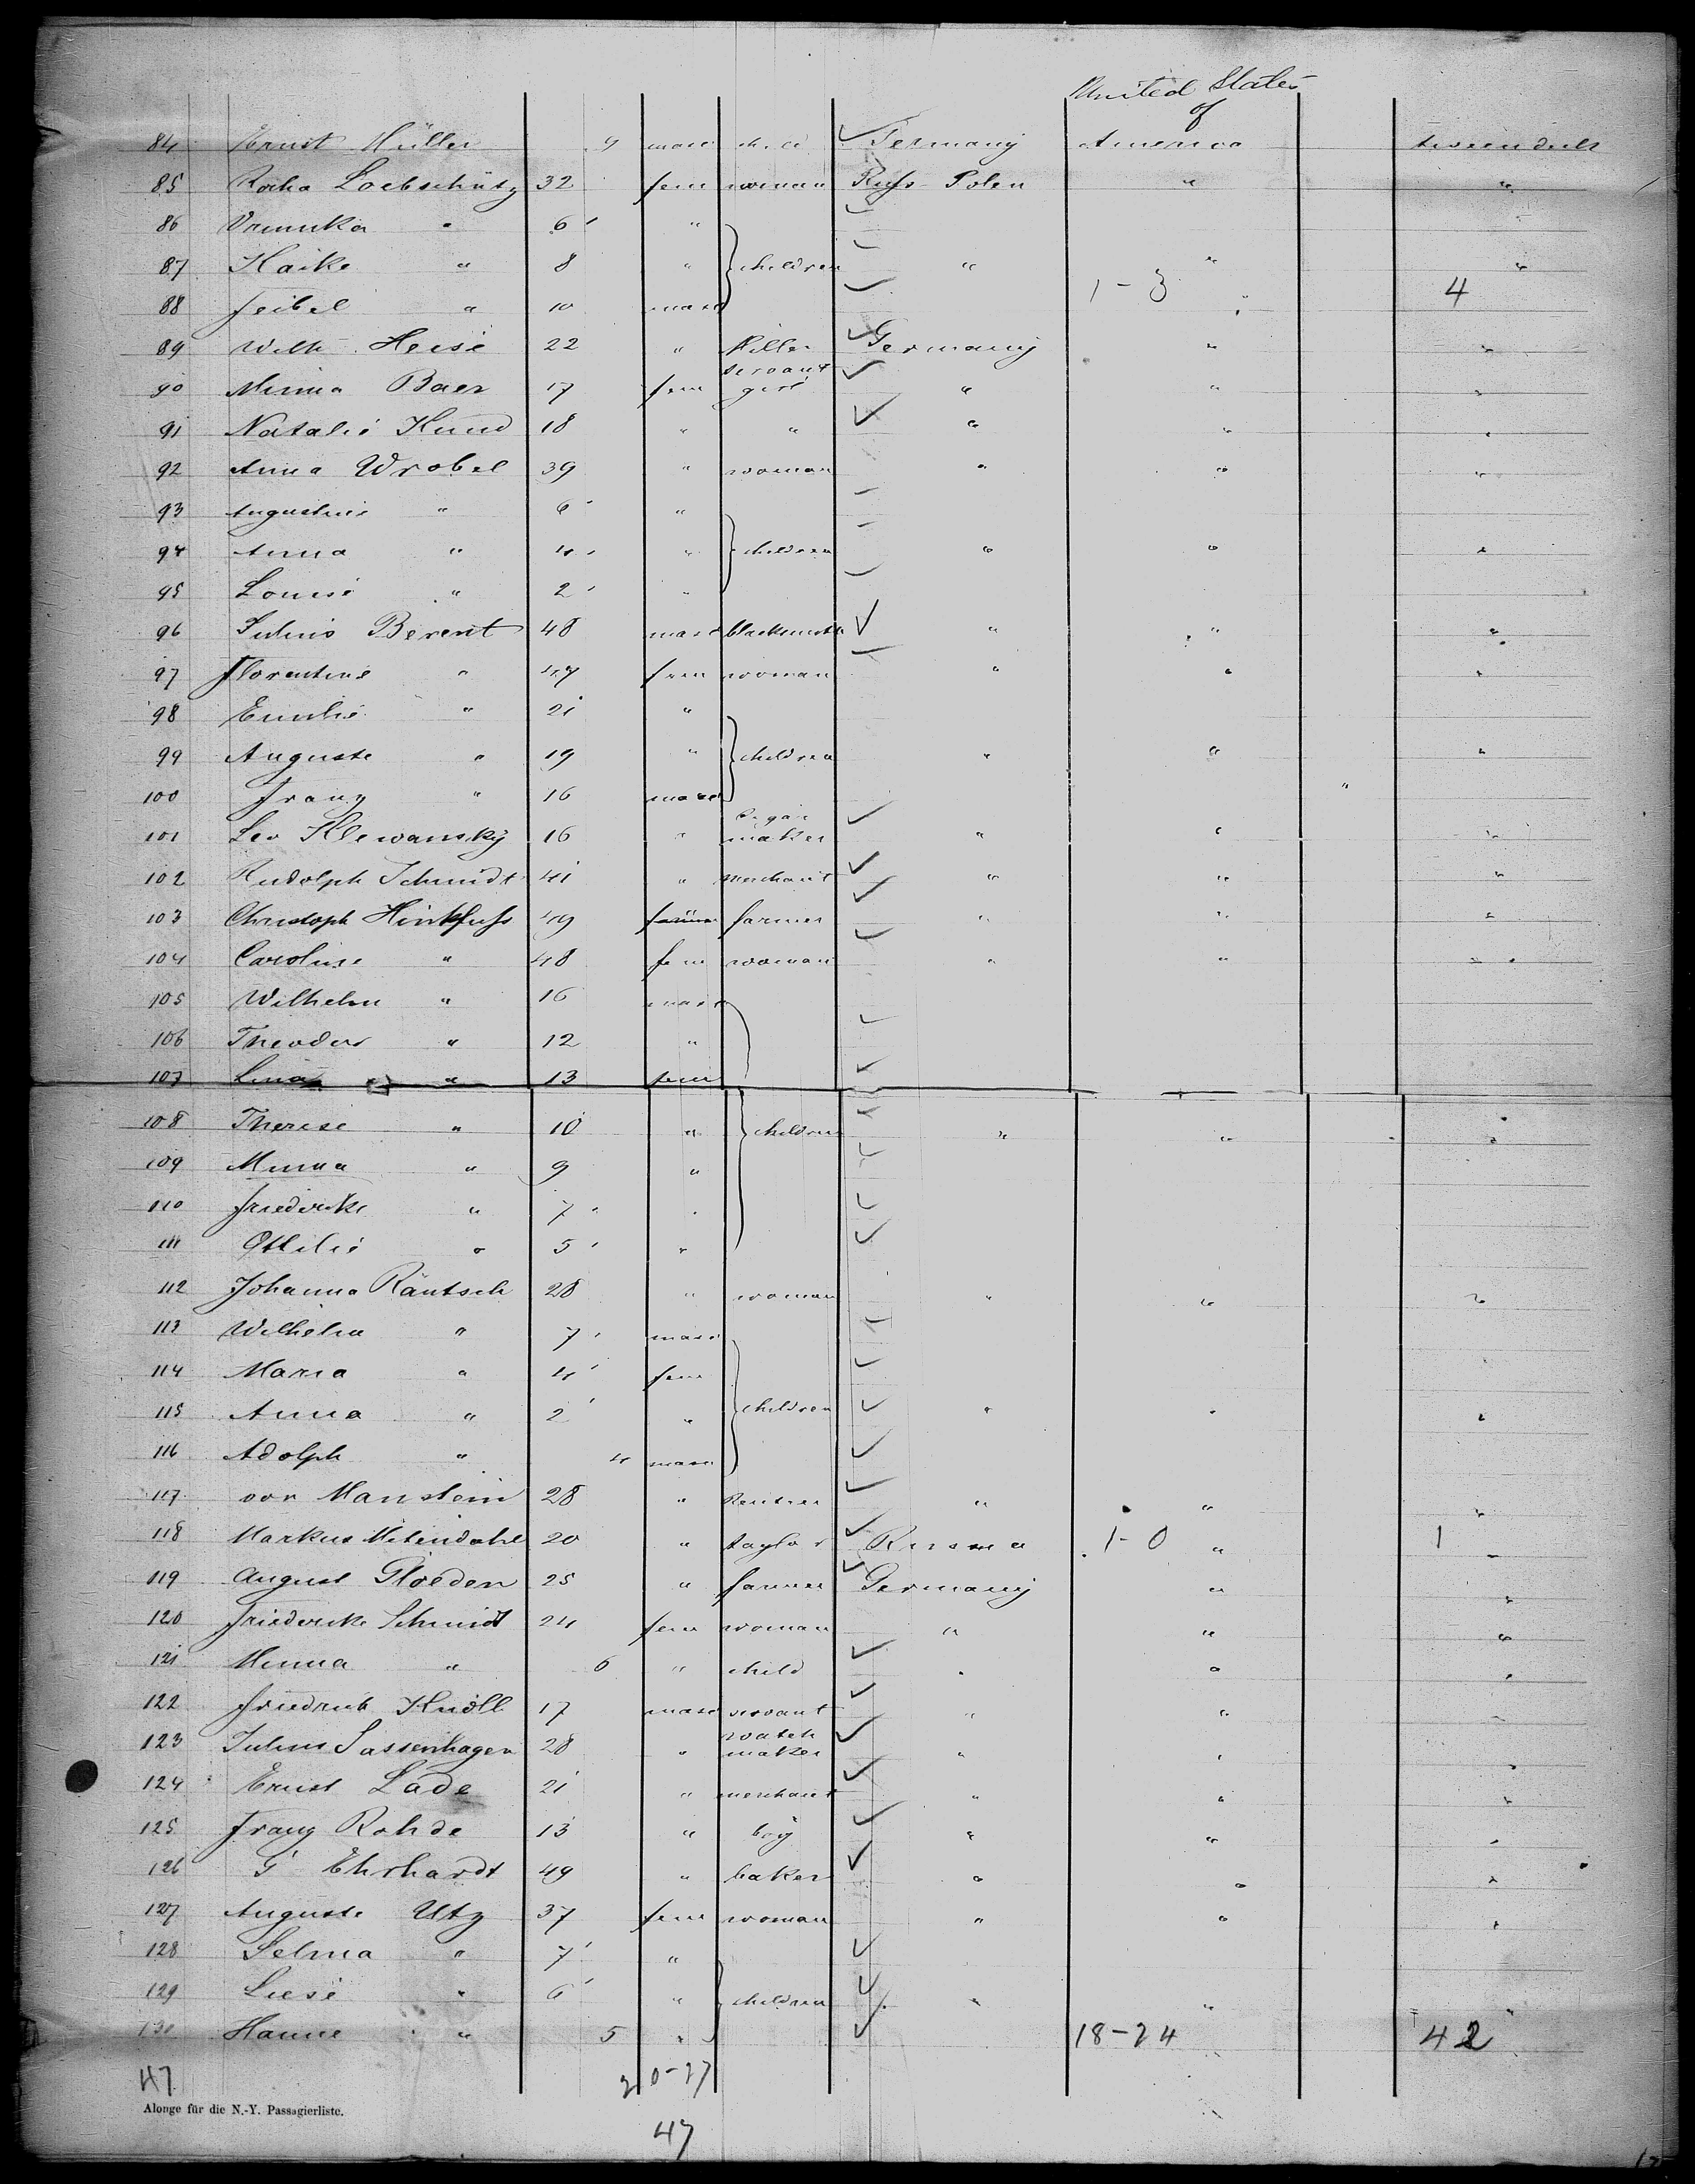 United States
of
84 Ernst Müller 9 masc child Germany America tween deck
85 Rocha Loebschütz 32 fem woman Russ Polen " "
86 " 6 "
87 Haike " 8 " children " " "
88 Feibel " 10 masc 1-3 " 4
89 Wilh. Heise 22 " Miller Germany " "
servant
90 Minna Baer 17 fem girl " " "
91 Natalie Kund 18 " " " " "
92 Anna Wrobel 39 " woman " " "
93 Augustine " 6 "
94 Anna " 4 " children " " "
95 Louise " 2 "
96 Julius Berent 48 masc blacksmith " " "
97 Florentine " 47 fem woman " " "
98 Emilie " 21 "
99 Auguste " 19 " children " " "
100 Franz " 16 masc "
Cigar
101 Leo Klewansky 16 " maker " " "
102 Rudolph Schmidt 41 " merchant " " "
103 Christoph Hinkfuss 49 farmer " " "
104 Caroline " 48 fem woman " " "
105 Wilhelm " 16 masc
106 Theodor " 12 "
107 Lina " 13 fem
108 Therese " 10 " children " " "
109 Minna " 9 "
110 Friedericke " 7 "
111 Ottilie " 5 "
112 Johanna Räntsch 28 " woman " " "
113 Wilhelm " 7 masc
114 Maria " 4 fem
115 Anna " 2 " children " " "
116 Adolph " 4 masc
117 von Manstein 28 " Rentner " " "
118 Markus 20 " taylor Russia 1-0 " 1 "
119 August Gloeden 25 " farmer Germany " "
120 Friedericke Schmidt 24 fem woman " " "
121 Minna " 6 " child " " "
122 Friedrich Knöll 17 masc servant " " "
watch
123 Julius Sassenhagen 28 " maker " " "
124 Ernst Lade 21 " merchant " " "
125 Franz Rohde 13 " boy " " "
126 G Ehrhardt 49 " baker " " "
127 Auguste Utz 37 fem woman " " "
128 Selma " 7 "
129 Liese " 6 " children " " "
130 Hanne " 5 " 18-24 42
47 20-27
Alonge für die N.-Y. Passagierliste.
47